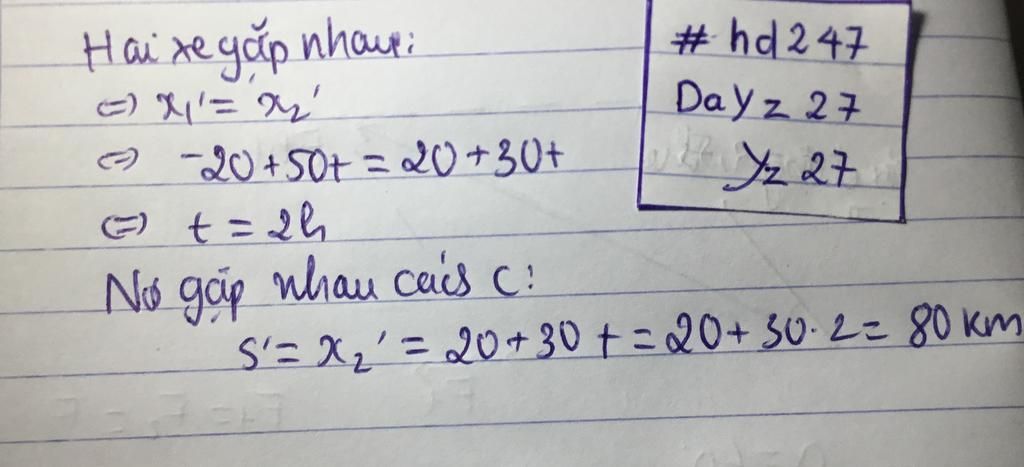 Hai xe gặp nhau:
⇔ x₁' = x₂'
⇔ -20 + 50t = 20 + 30t
⇔ t = 2h
Nơi gặp nhau cách C:
S' = x₂' = 20 + 30 t = 20 + 30·2 = 80 km
# hd247
DaYz 27
Yz 27